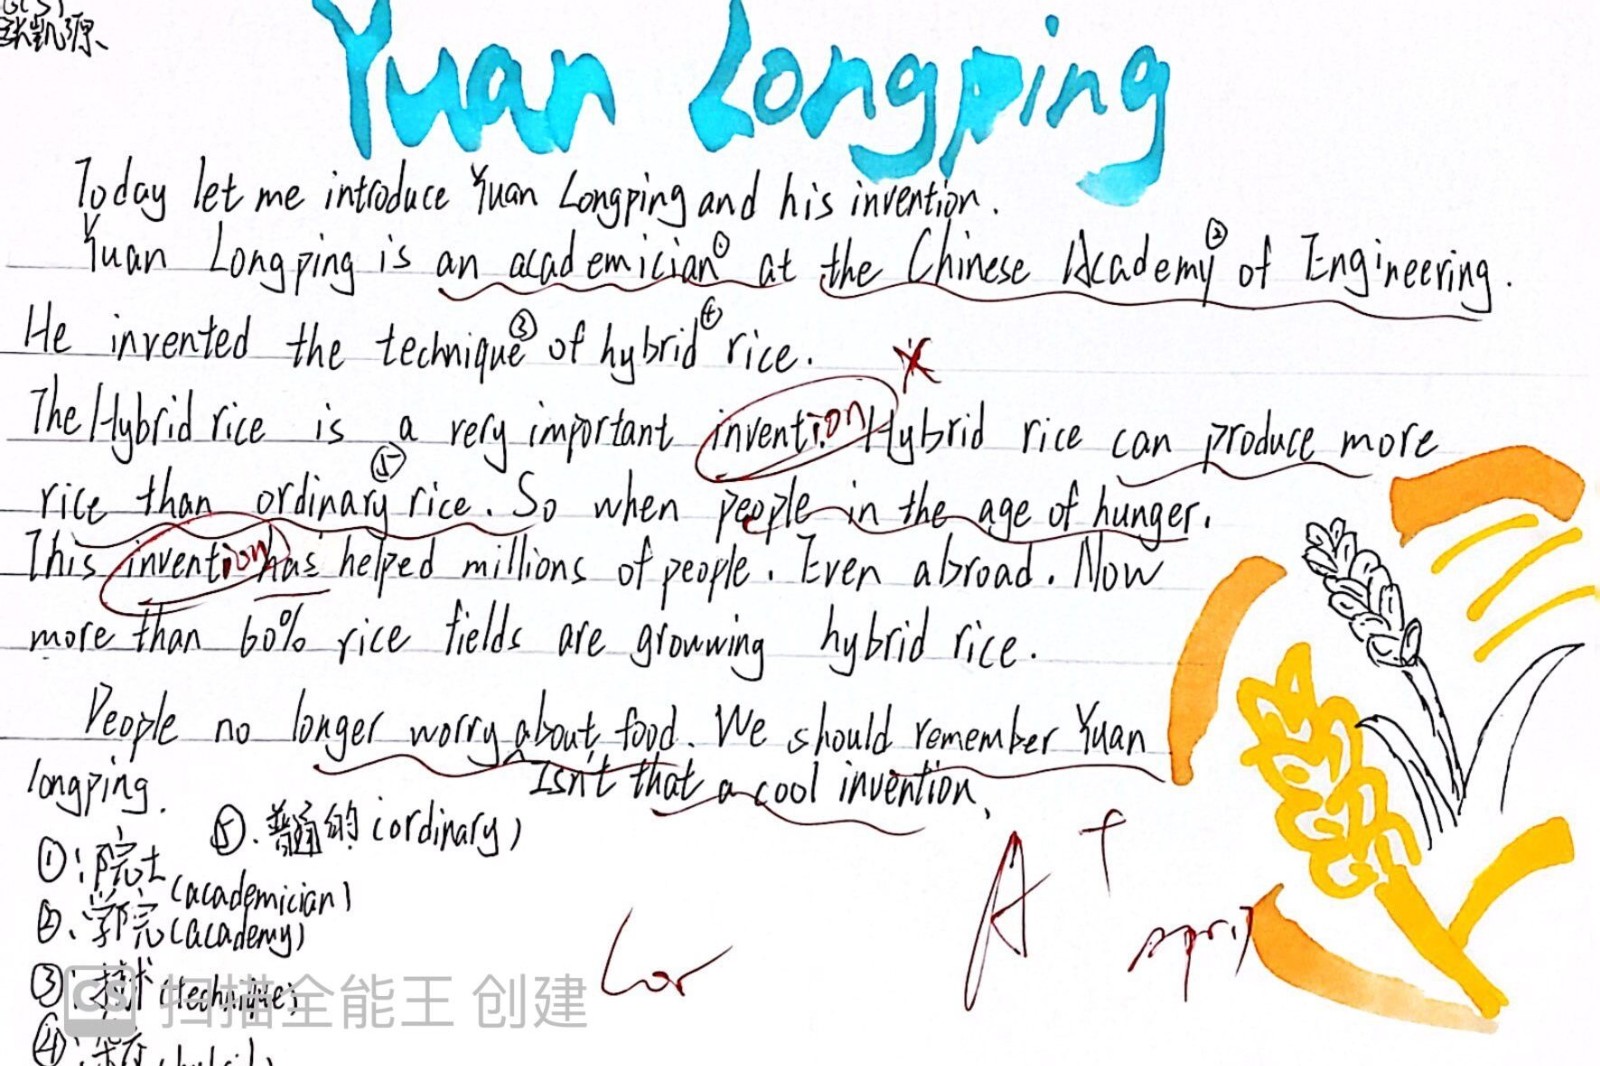 张凯源
Yuan Longping
Today let me introduce Yuan Longping and his invention.
Yuan Longping is an academician① at the Chinese Academy② of Engineering.
He invented the technique③ of hybrid④ rice.
The Hybrid rice is a very important invention Hybrid rice can produce more
rice than ordinary⑤ rice. So when people in the age of hunger.
This invention has helped millions of people. Even abroad. Now
more than 60% rice fields are growwing hybrid rice.
People no longer worry about food. We should remember Yuan
longping.
Isn't that a cool invention.
⑤.普通的(ordinary)
①:院士(academician)
②、学院(academy)
③:技术(technique)
A+
April
扫描全能王 创建
CS